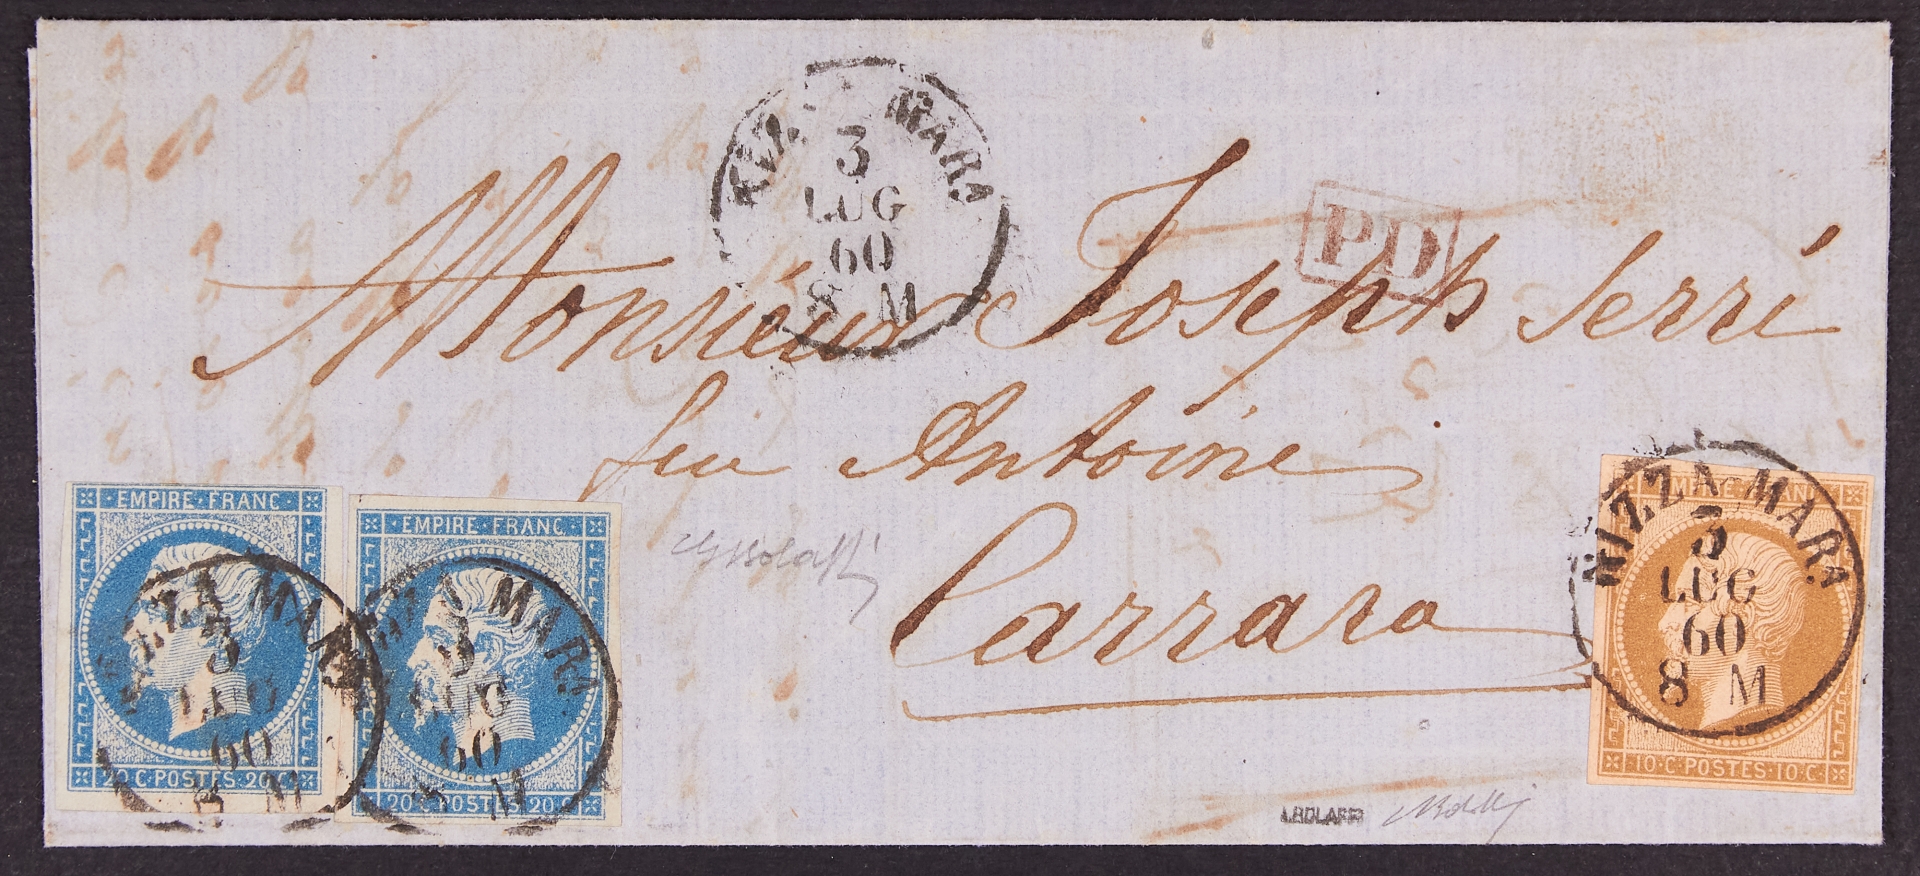 NIZZA MAR.
3
LUG
60
8 M
PD
Monsieur Joseph Serri
feu Antoine
Carrara
EMPIRE·FRANC·
20·C·POSTES·20·C·
NIZZA MAR.
3
LUG
60
8 M
EMPIRE·FRANC·
20·C·POSTES·20·C·
NIZZA MAR.
3
LUG
60
8 M
EMPIRE·FRANC·
10·C·POSTES·10·C·
NIZZA MAR.
3
LUG
60
8 M
A.BOLAFFI